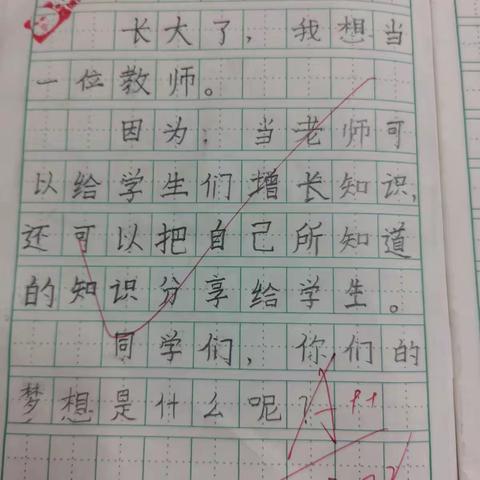 长大了，我想当
一位教师。
因为，当老师可
以给学生们增长知识，
还可以把自己所知道
的知识分享给学生。
同学们，你们的
梦想是什么呢？